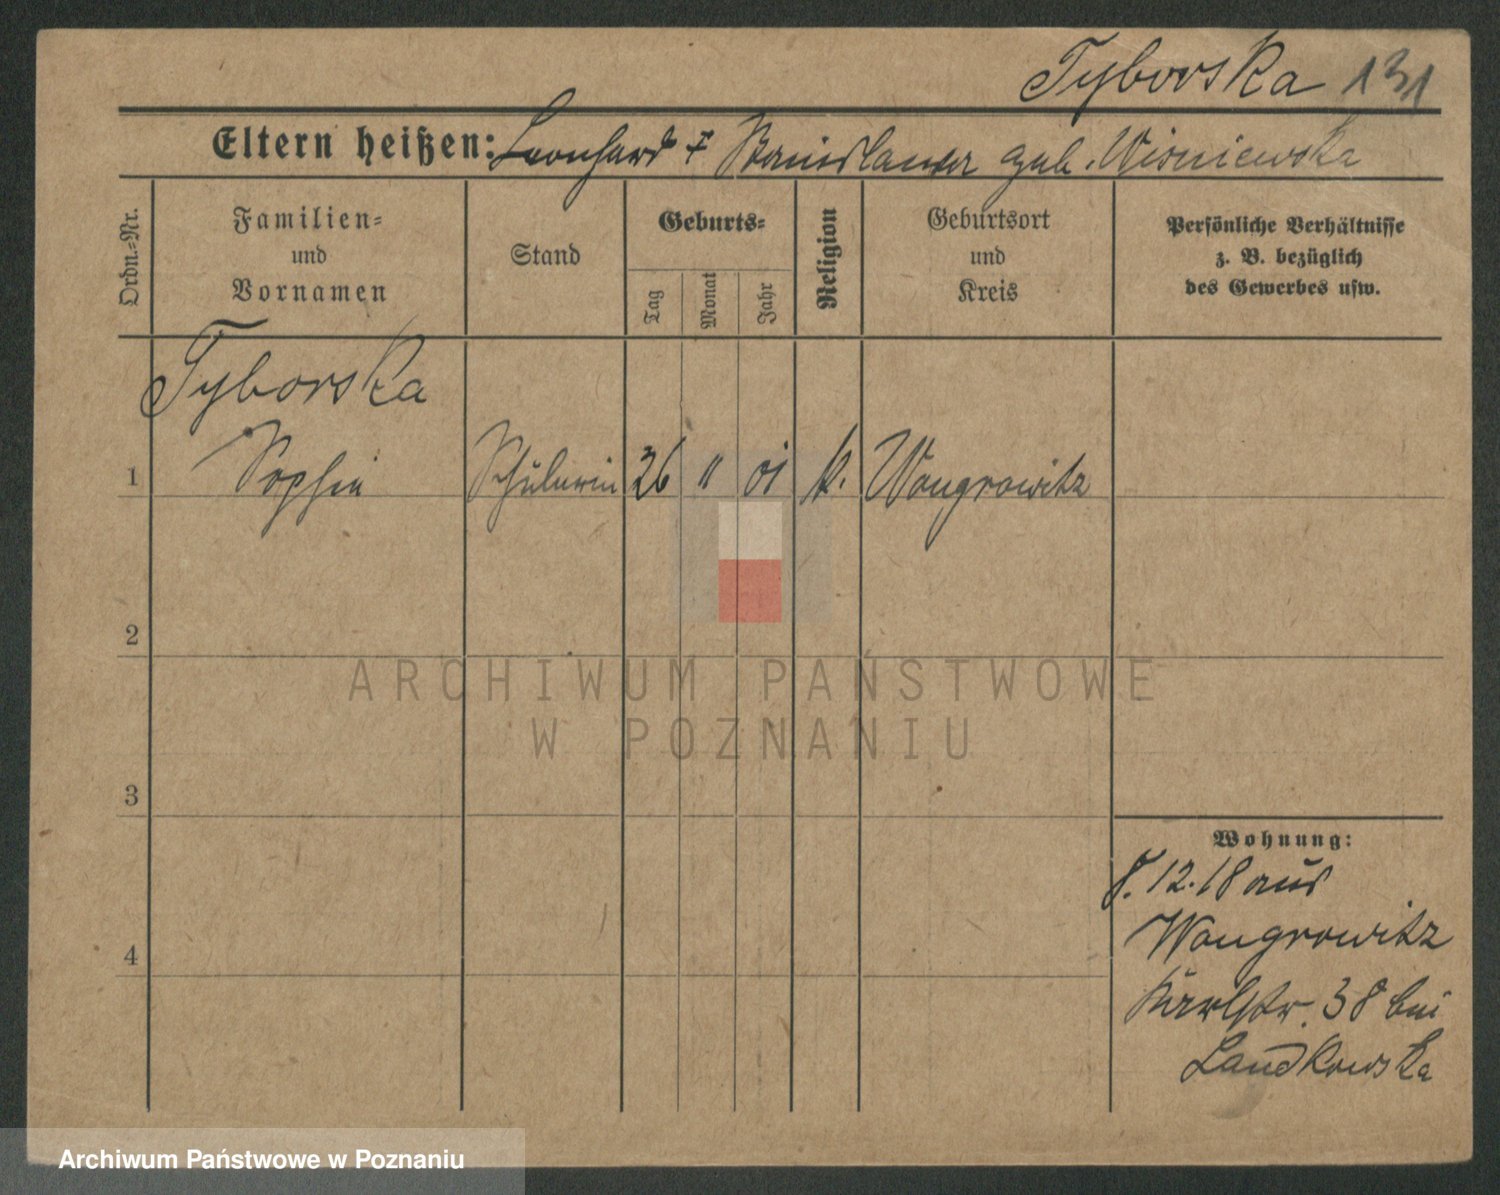 Tyborska 131
Eltern heißen: Leonhard † Stanislawa geb. Wisniewska
Ordn.=Nr.
Familien=
und
Vornamen
Stand
Geburts=
Tag
Monat
Jahr
Religion
Geburtsort
und
Kreis
Persönliche Verhältnisse
z. B. bezüglich
des Gewerbes usw.
Tyborska
1 Sophie Schülerin 26 " 01 k. Wongrowitz
2
3
4
Wohnung:
8. 12. 18 aus
Wongrowitz
Karlstr. 38 bei
Landkowska
ARCHIWUM PAŃSTWOWE
W POZNANIU
Archiwum Państwowe w Poznaniu